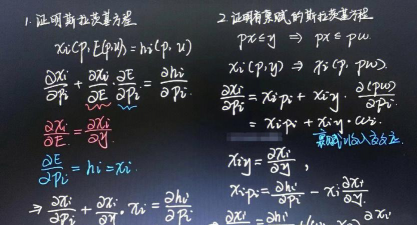 1. 证明斯拉茨基方程
xi(p,E(p,u))=hi(p,u)
∂xi/∂pi + ∂xi/∂E ∂E/∂pi = ∂hi/∂pi
∂xi/∂E = ∂xi/∂y
∂E/∂pi = hi = xi
⇒ ∂xi/∂pi + ∂xi/∂y · xi = ∂hi/∂pi
2. 证明有禀赋的斯拉茨基方程
px≤y ⇒ px≤pw
xi(p,y) ⇒ xi(p,pw)
∂xi/∂pi = xipi + xiy · ∂(pw)/∂pi
= xipi + xiy · wi
禀赋收入效应
xiy = ∂xi/∂y
xipi = ∂hi/∂pi − xi ∂xi/∂y
⇒ ∂xi = ∂hi ∂xi